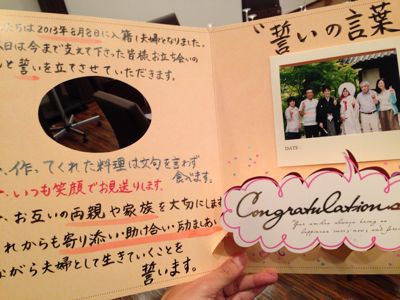 たちは2013年8月8日に入籍し夫婦となりました。
日は今まで支えて下さった皆様お立ち会いの
と誓いを立てさせていただきます。
・作ってくれた料理は文句を言わず
食べます。
・いつも笑顔でお見送りします。
・お互いの両親や家族を大切にします
れからも寄り添い・助け合い・励ましあい
ながら夫婦として生きていくことを
誓います。
"誓いの言葉
DATE:
Congratulations
Your smiles always bring us